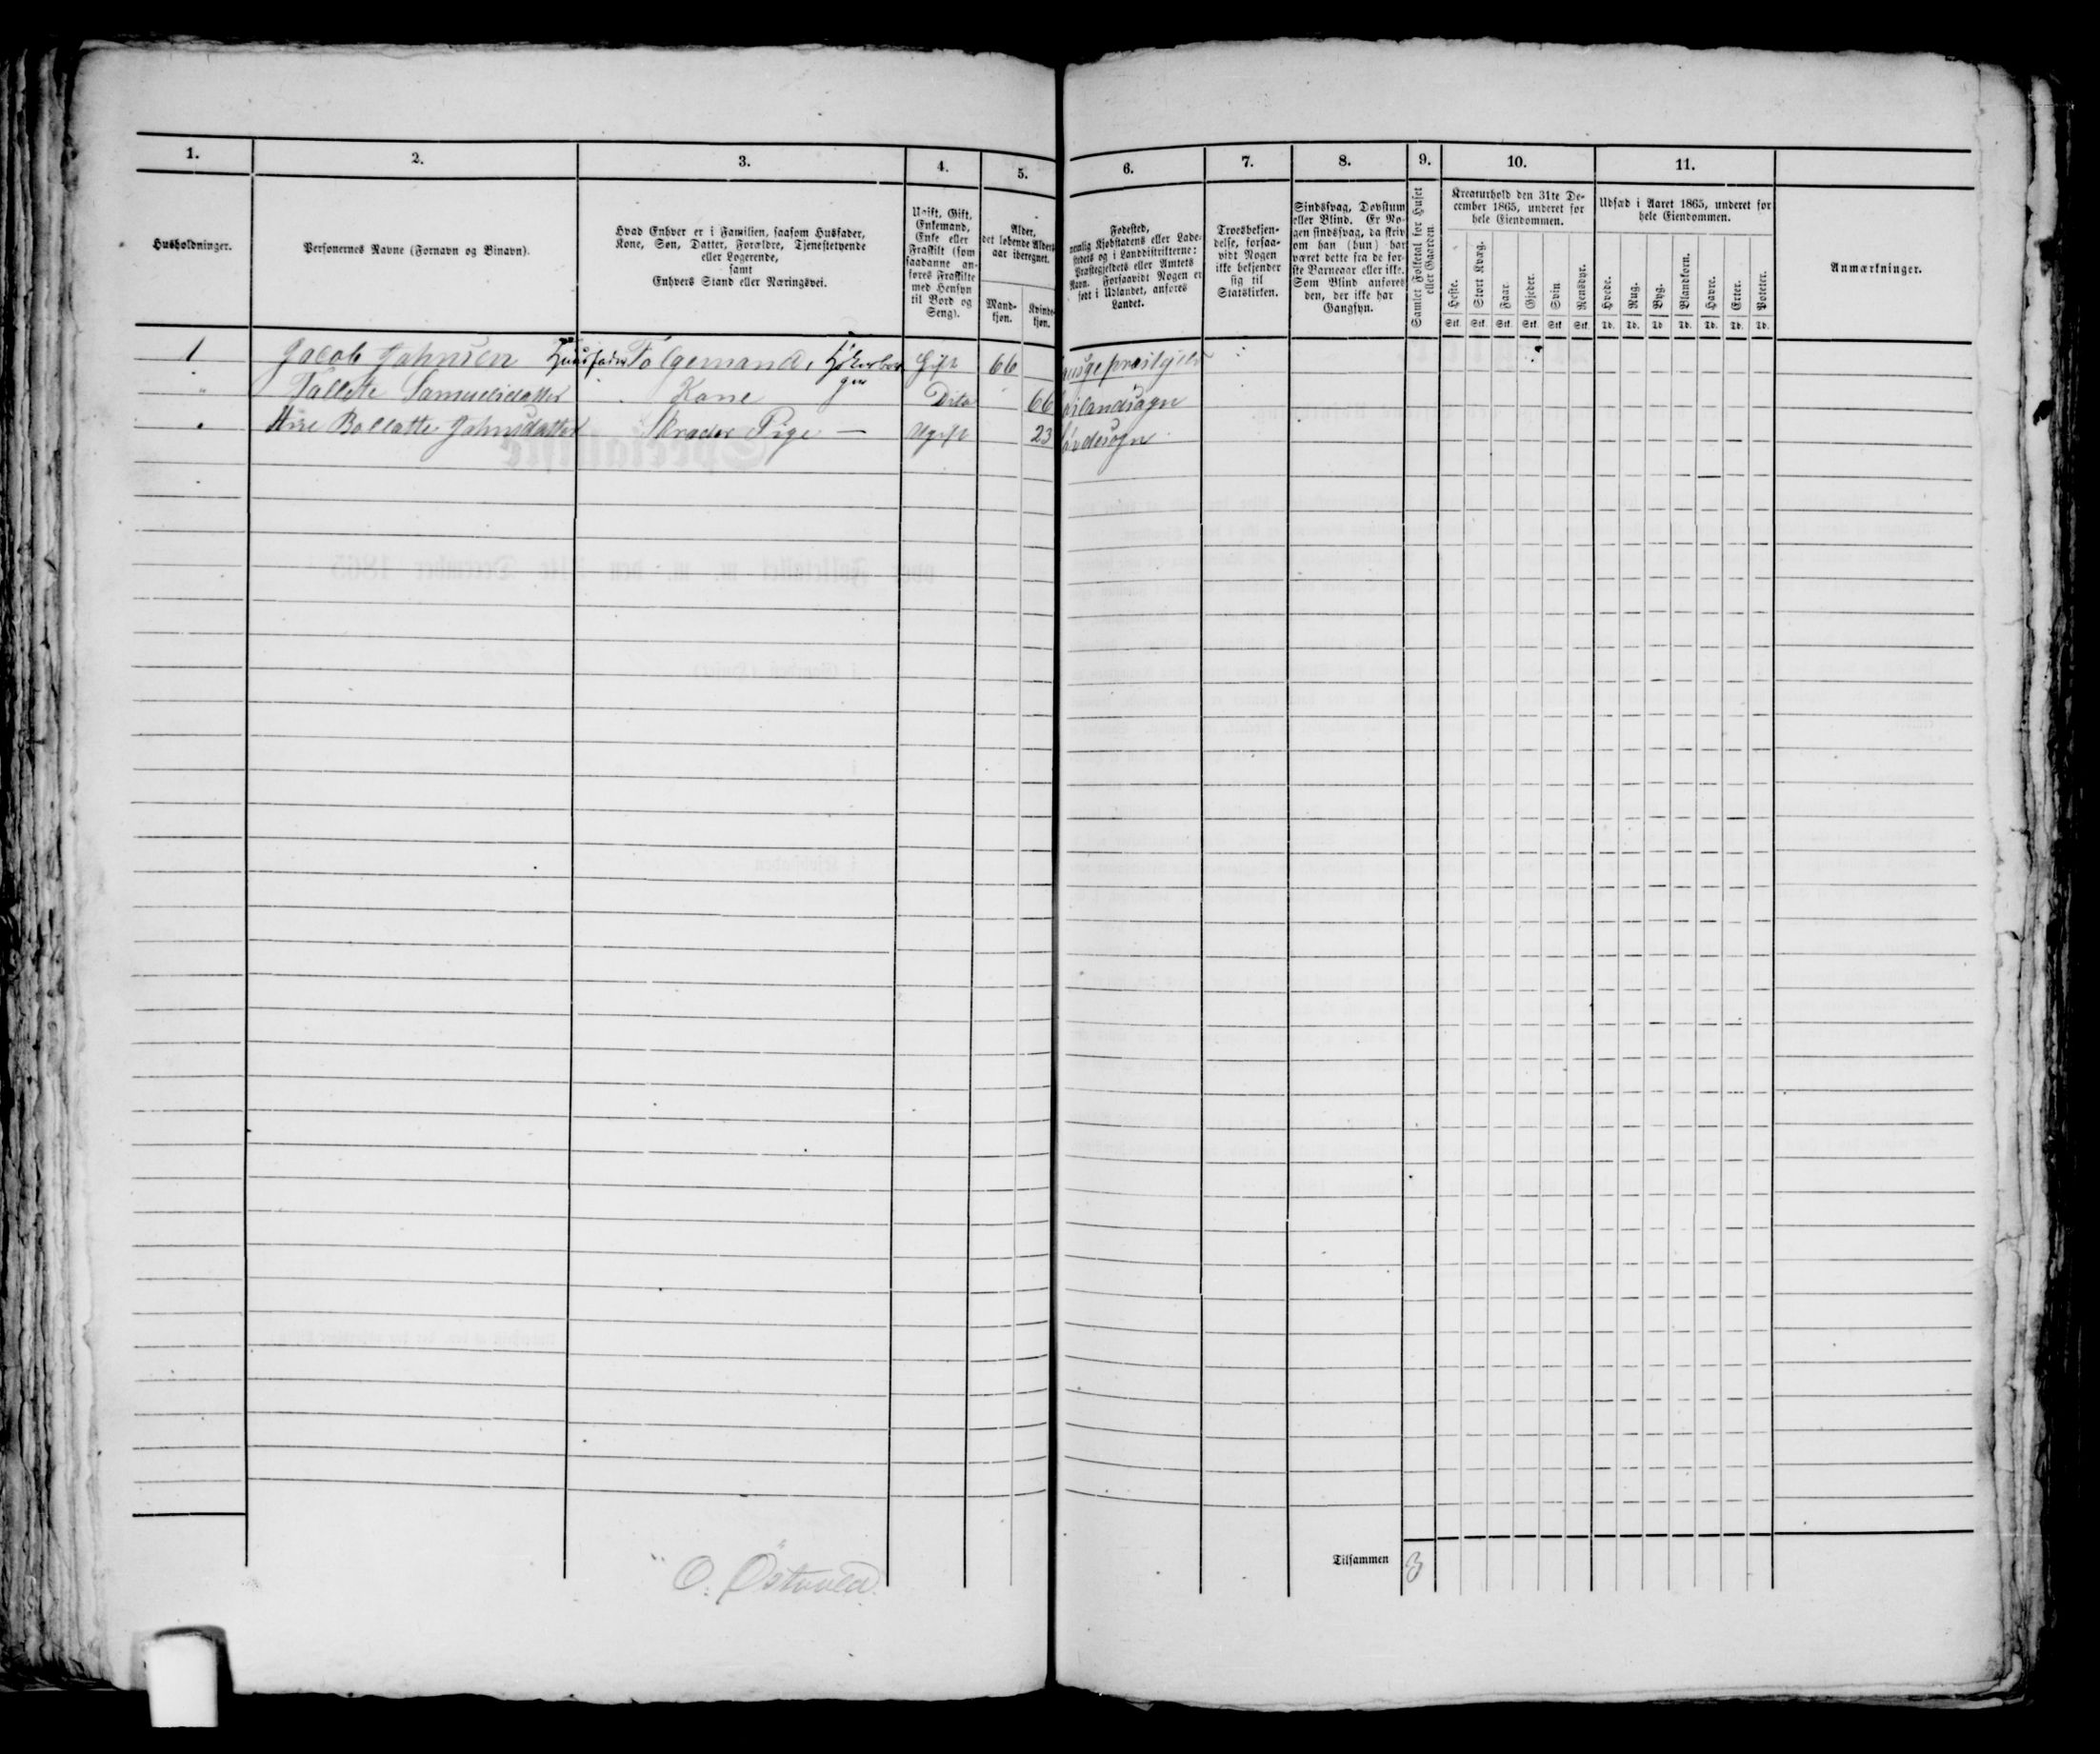 1. 2. 3. 4. 5. 6. 7. 8. 9. 10. 11.
Husholdninger.
Personernes Navne (Fornavn og Binavn).
Hvad Enhver er i Familien, saasom Husfader,
Kone, Søn, Datter, Forældre, Tjenestetyende
eller Logerende,
samt
Enhvers Stand eller Næringsvei.
Ugift, Gift,
Enkemand,
Enke eller
Fraskilt (som
saadanne an-
føres Fraskilte
med Hensyn
til Bord og
Seng).
Alder,
det løbende Alders-
aar iberegnet.
Mand-
kjøn.
Kvinde-
kjøn.
Fødested,
nemlig Kjøbstadens eller Lade-
stedets og i Landdistrikterne:
Præstegjeldets eller Amtets
Navn. Forsaavidt Nogen er
født i Udlandet, anføres
Landet.
Troesbekjen-
delse, forsaa-
vidt Nogen
ikke bekjender
sig til
Statskirken.
Sindssvag, Døvstum
eller Blind. Er No-
gen sindssvag, da skriv
om han (hun) har
været dette fra de før-
ste Barneaar eller ikke.
Som Blind anføres
den, der ikke har
Gangsyn.
Samlet Folketal for Huset
eller Gaarden.
Kreaturhold den 31te De-
cember 1865, underet for
hele Eiendommen.
Heste. Stort Kvæg. Faar. Gjeder. Svin. Rensdyr.
Stk. Stk. Stk. Stk. Stk. Stk.
Udsæd i Aaret 1865, underet for
hele Eiendommen.
Hvede. Rug. Byg. Blandkorn. Havre. Erter. Poteter.
Td. Td. Td. Td. Td. Td. Td.
Anmærkninger.
1 Jacob Jahnsen Huusfader Følgemand, Gift 66
" Tallete Samuelsdatter Kone Dito 66
Bollatte Jahnsdatter Pige — Ugift 23
O. Østvold.
Tilsammen 3